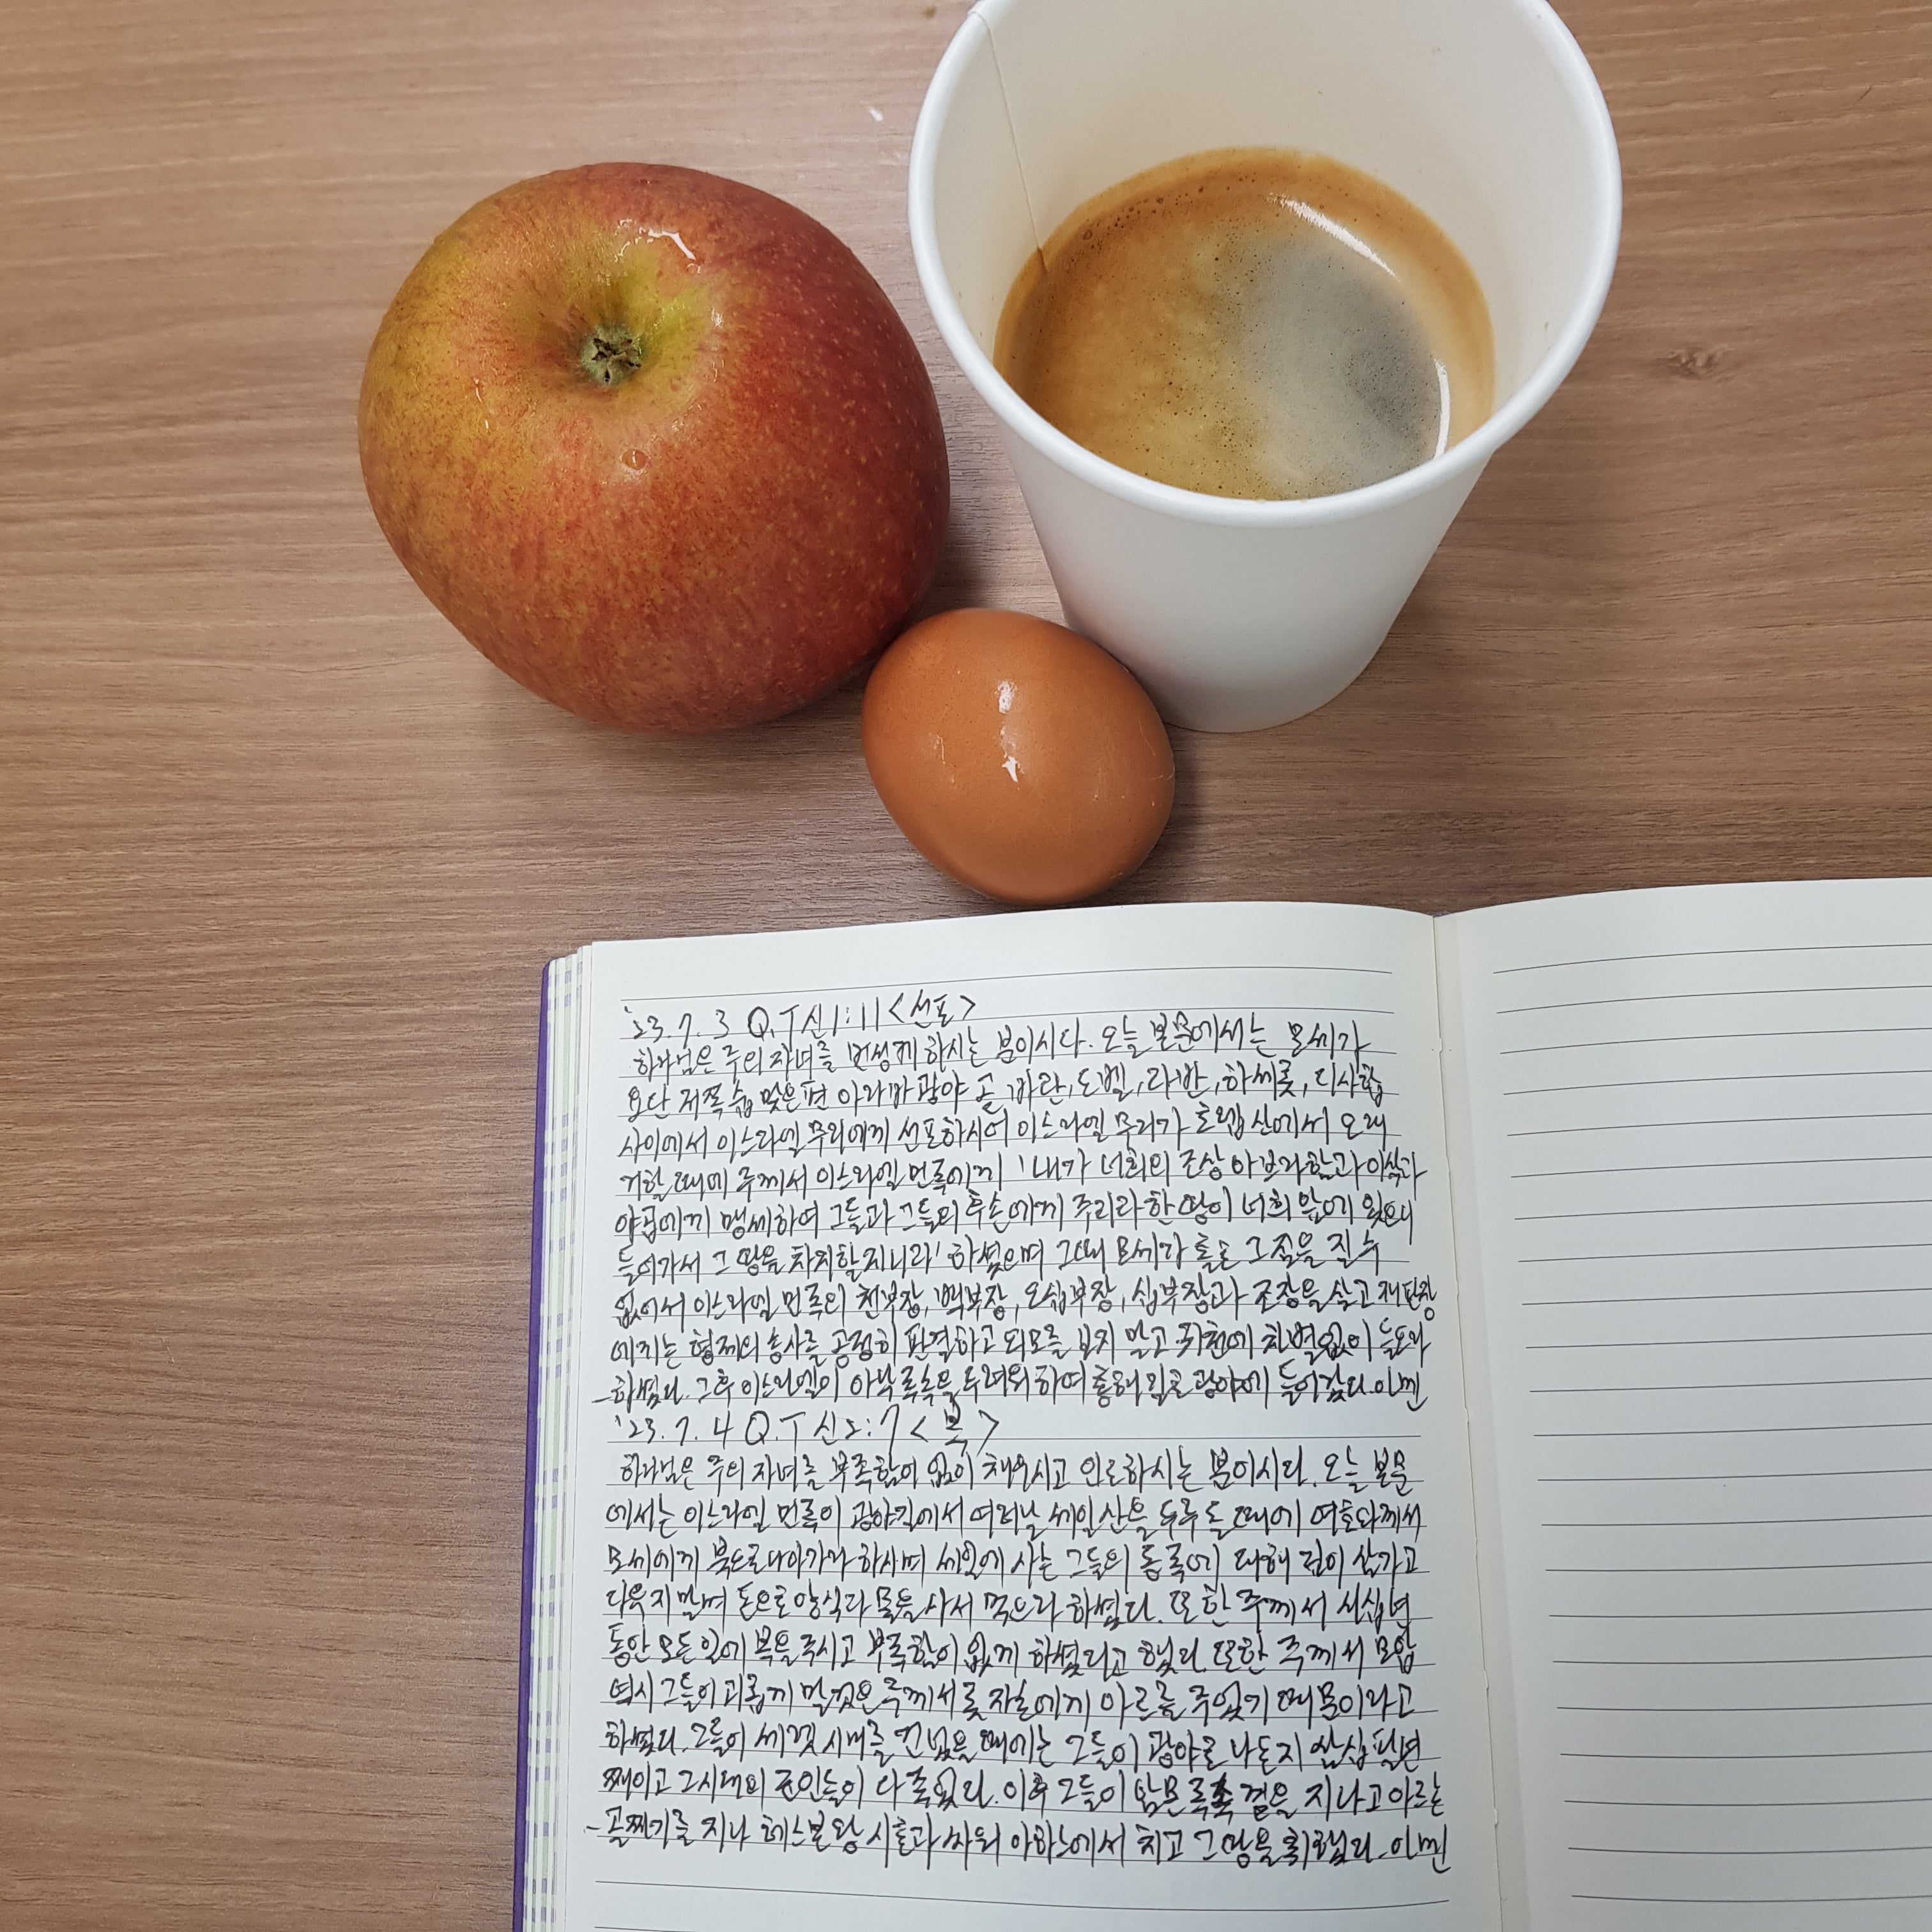 '23.7.3 Q.T 신1:11 <선포>
하나님은 주의 자녀를 번성케 하시는 분이시다. 오늘 본문에서는 모세가
요단 저쪽 숩 맞은편 아라바 광야 곧 바란, 도벨, 라반, 하세롯, 디사합
사이에서 이스라엘 무리에게 선포하시어 이스라엘 무리가 호렙 산에서 오래
거할 때에 주께서 이스라엘 민족에게 '내가 너희의 조상 아브라함과 이삭과
야곱에게 맹세하여 그들과 그들의 후손에게 주리라 한 땅이 너희 앞에 있으니
들어가서 그 땅을 차지할지니라' 하셨으며 그때 모세가 홀로 그 짐을 질 수
없어서 이스라엘 민족의 천부장, 백부장, 오십부장, 십부장과 조장을 삼고 재판장
에게는 형제의 송사를 공정히 판결하고 외모를 보지 말고 귀천에 차별없이 들으라
하셨다. 그후 이스라엘이 아낙 족속을 두려워하여 홍해 길로 광야에 들어갔다. 아멘
'23.7.4 Q.T 신2:7 <복>
하나님은 주의 자녀를 부족함이 없이 채우시고 인도하시는 분이시다. 오늘 본문
에서는 이스라엘 민족이 광야길에서 여러날 세일 산을 두루 돌 때에 여호와께서
모세에게 북으로 나아가라 하시며 세일에 사는 그들의 동족에 대해 깊이 삼가고
다투지 말며 돈으로 양식과 물을 사서 먹으라 하셨다. 또한 주께서 사십년
동안 모든 일에 복을 주시고 부족함이 없게 하셨다고 했다. 또한 주께서 모압
역시 그들이 괴롭게 말것은 주께서 롯 자손에게 아르를 주었기 때문이라고
하셨다. 그들이 세렛 시내를 건넜을 때에는 그들이 광야로 나온지 삼십팔년
째이고 그시대의 군인들이 다 죽었다. 이후 그들이 암몬 족속 곁을 지나고 아르논
골짜기를 지나 헤스본 왕 시혼과 싸워 야하스에서 치고 그 땅을 취했다. 아멘